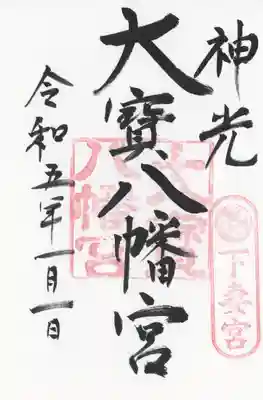 神光
大寳八幡宮
令和五年一月一日
大寳八幡宮
下妻宮